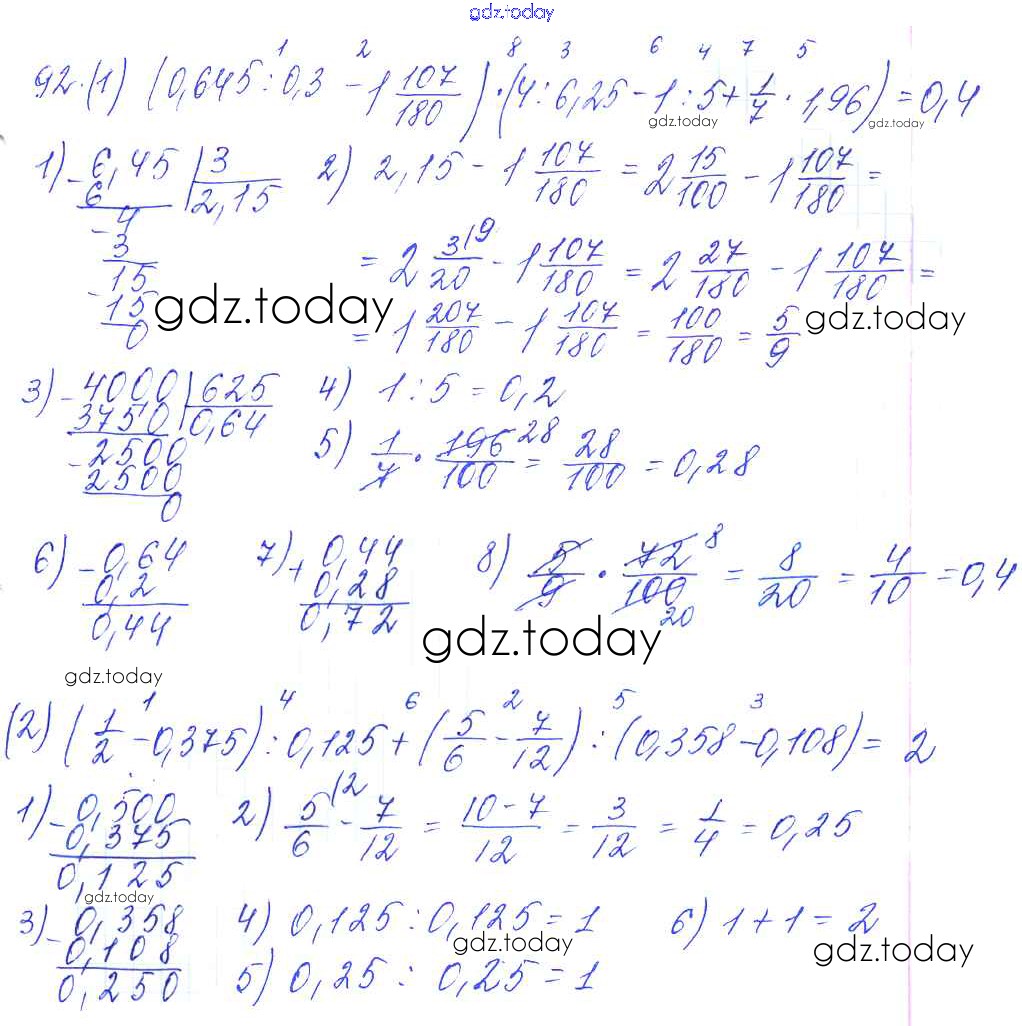 gdz.today
1 2 8 3 6 4 7 5
92.(1) (0,645 : 0,3 - 1 107/180) · (4 : 6,25 - 1 : 5 + 1/7 · 1,96) = 0,4
gdz.today gdz.today
1) - 6,45 | 3 2) 2,15 - 1 107/180 = 2 15/100 - 1 107/180 =
6 2,15
- 4
3 = 2 3/20 \9 - 1 107/180 = 2 27/180 - 1 107/180 =
- 15
15 gdz.today = 1 207/180 - 1 107/180 = 100/180 = 5/9 gdz.today
0
3) - 4000 | 625 4) 1 : 5 = 0,2
3750 0,64
- 2500 5) 1/7 · 196/100 28 = 28/100 = 0,28
2500
0
6) - 0,64 7) + 0,44 8) 5/9 · 72/100 8 20 = 8/20 = 4/10 = 0,4
0,2 0,28
0,44 0,72 gdz.today
gdz.today
1 4 6 2 5 3
(2) (1/2 - 0,375) : 0,125 + (5/6 - 7/12) : (0,358 - 0,108) = 2
1) - 0,500 2) 5/6 \2 - 7/12 = 10-7/12 = 3/12 = 1/4 = 0,25
0,375
0,125
gdz.today
3) - 0,358 4) 0,125 : 0,125 = 1 6) 1 + 1 = 2
0,108 gdz.today gdz.today
0,250 5) 0,25 : 0,25 = 1